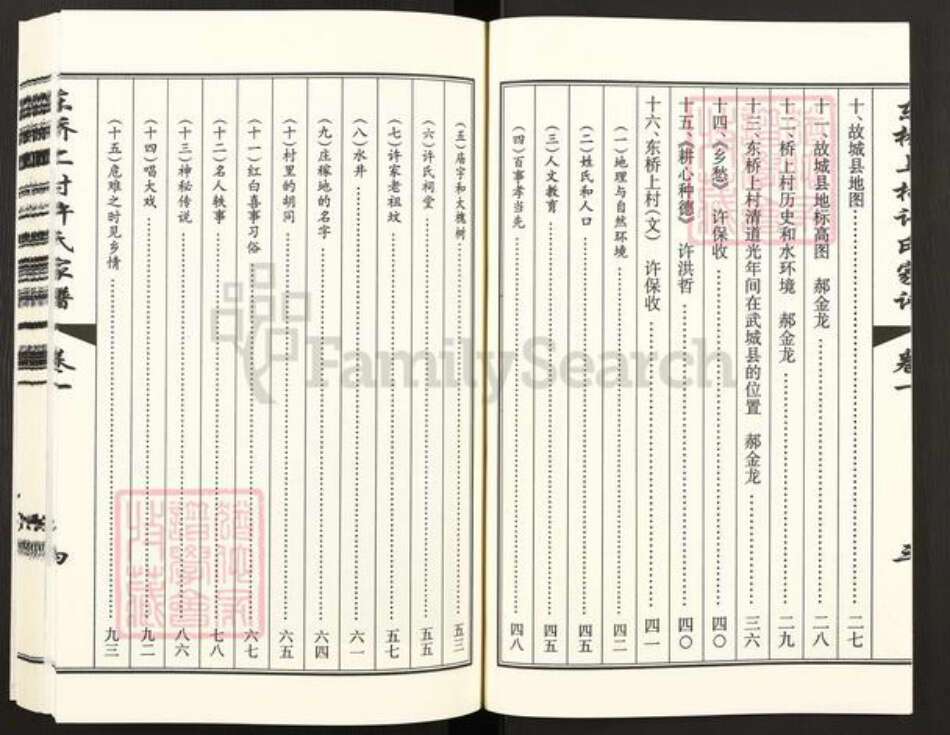 东桥上村许氏家谱 卷一 三
十、故城县地图 二七
十一、故城县地标高图 郝金龙 二八
十二、桥上村历史和水环境 郝金龙 二九
十三、东桥上村清道光年间在武城县的位置 郝金龙 三六
十四、《乡愁》 许保收 四〇
十五、《耕心种德》 许洪哲 四〇
十六、东桥上村(文) 许保收 四一
(一)地理与自然环境 四二
(二)姓氏和人口 四五
(三)人文教育 四五
(四)百事孝当先 四八
(五)庙宇和大槐树 五三
(六)许氏祠堂 五五
(七)许家老祖坟 五七
(八)水井 六一
(九)庄稼地的名字 六四
(十)村里的胡同 六五
(十一)红白喜事习俗 六七
(十二)名人轶事 七八
(十三)神秘传说 八六
(十四)唱大戏 九二
(十五)危难之时见乡情 九三
东桥上村许氏家谱 卷一 四
FamilySearch